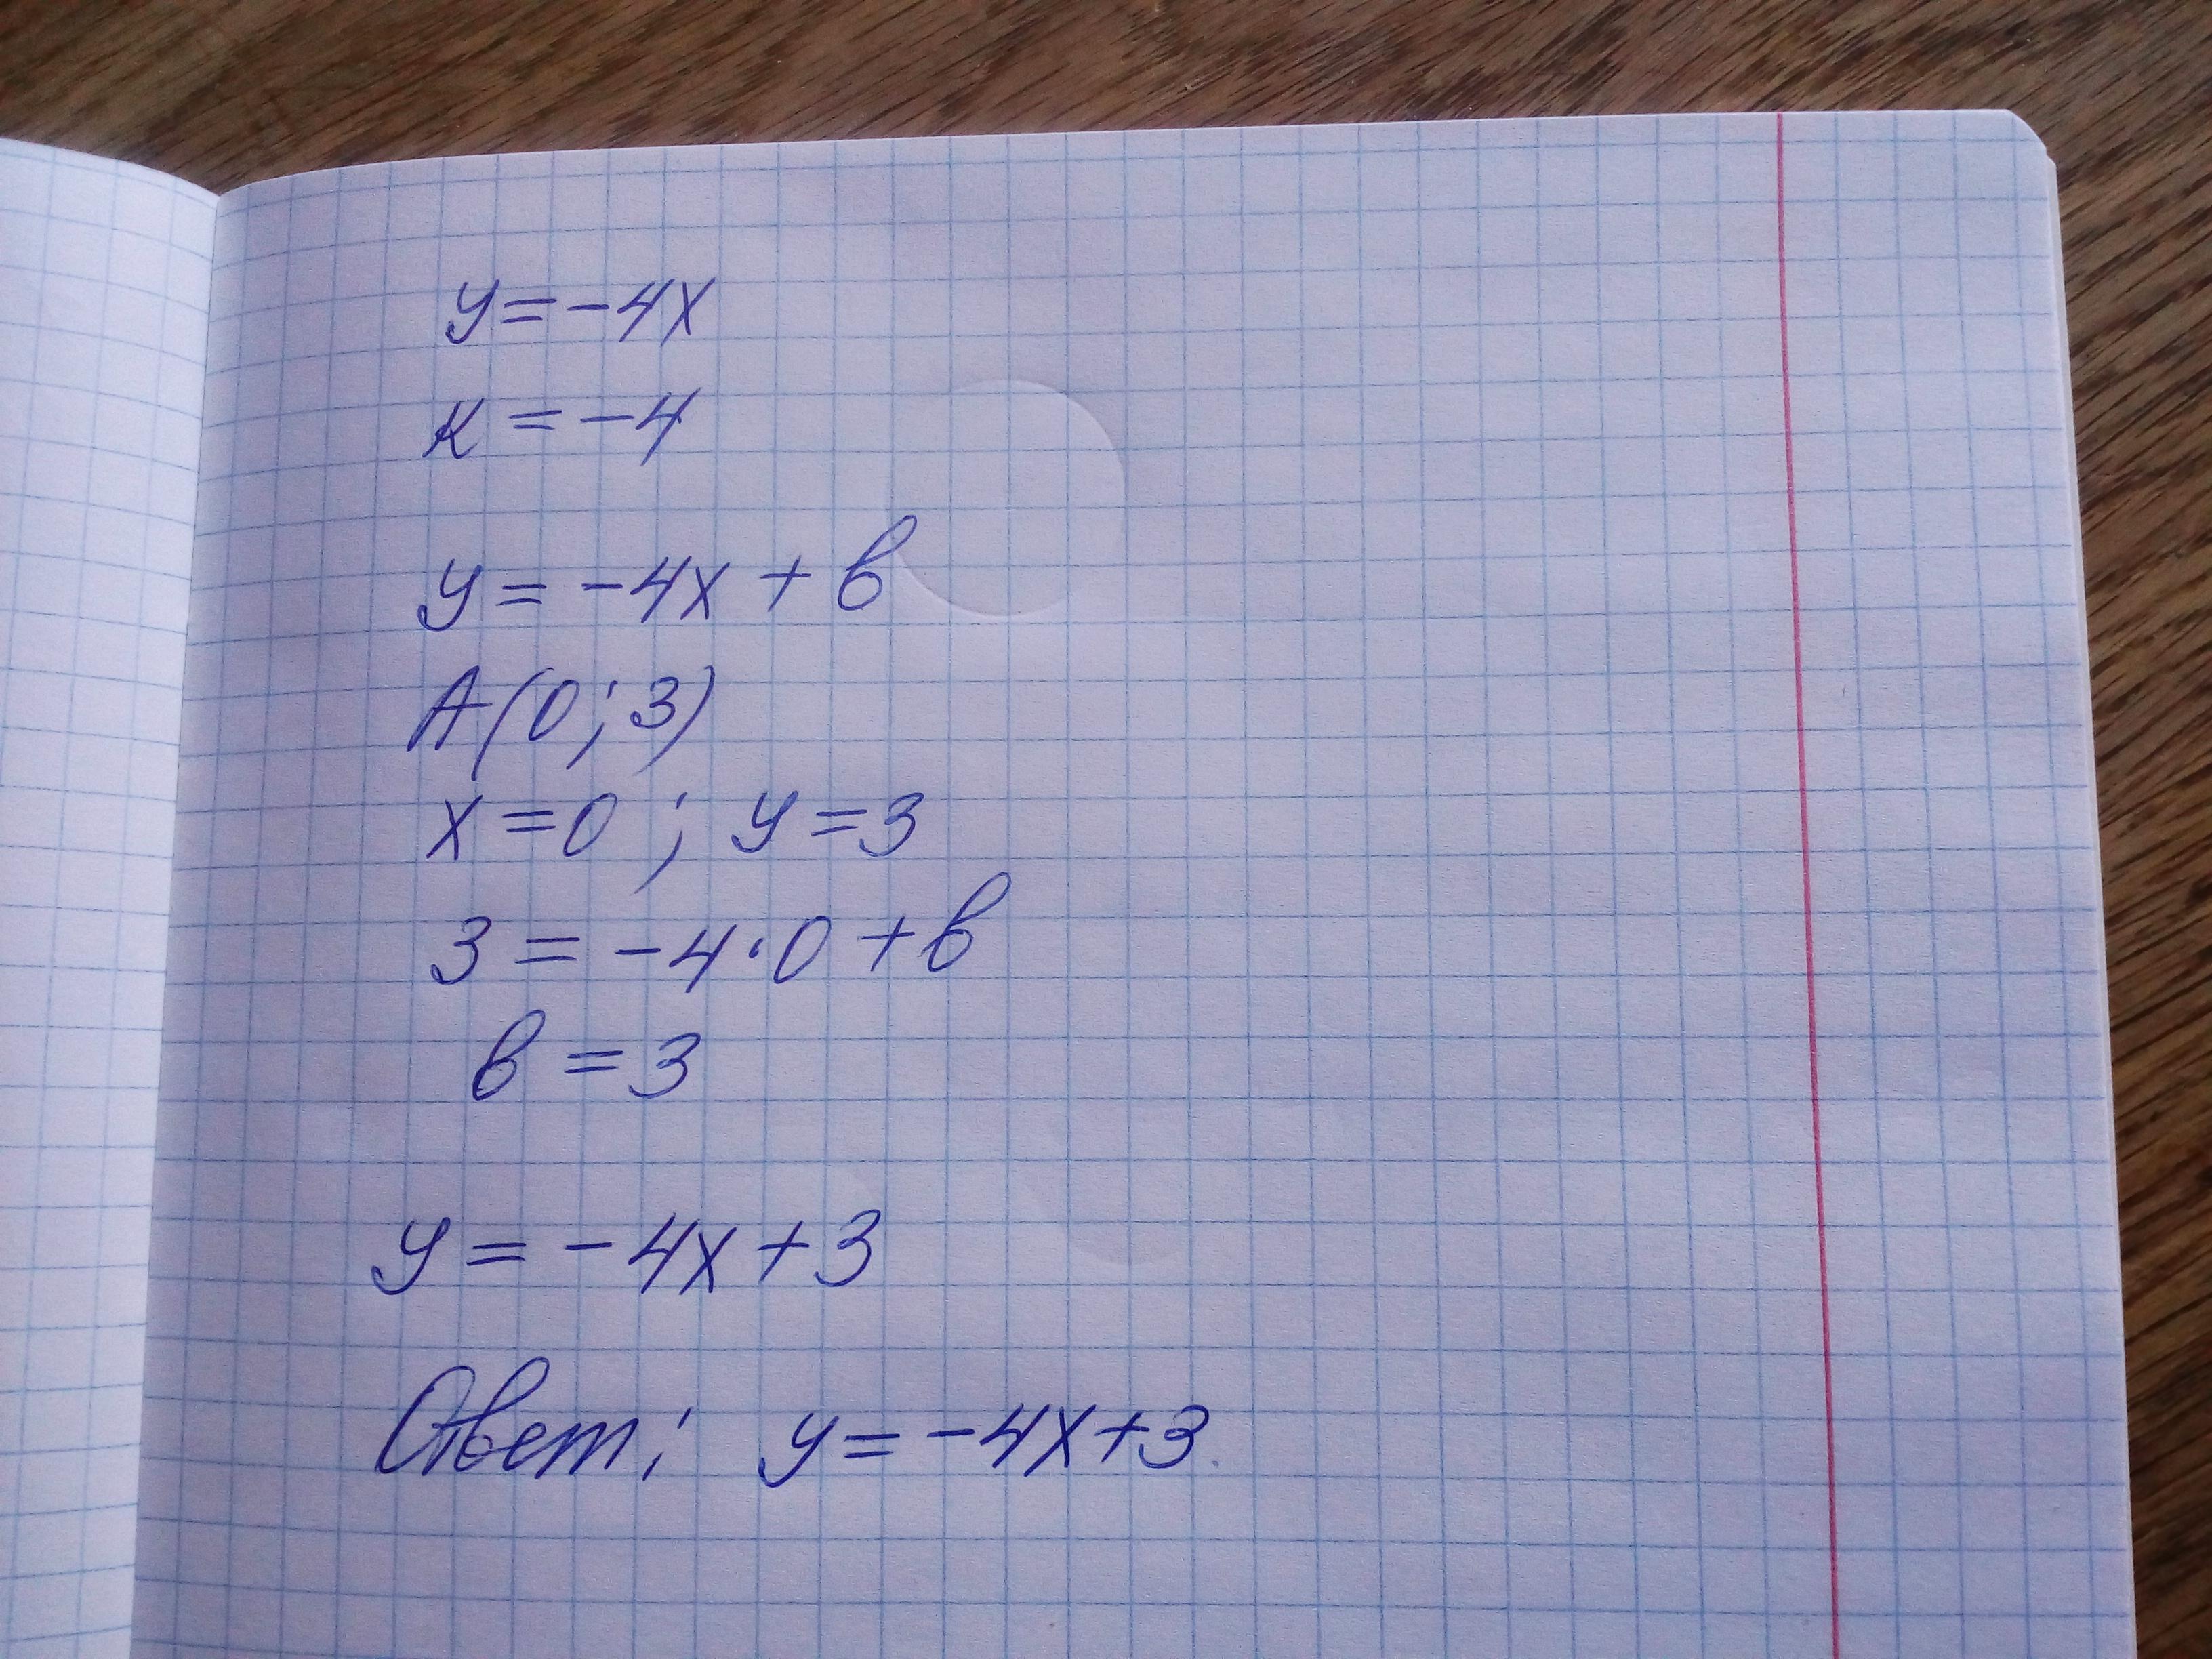 y=-4x
к=-4
y=-4x+в
А(0;3)
x=0; y=3
3=-4·0+в
в=3
y=-4x+3
Ответ: y=-4x+3.